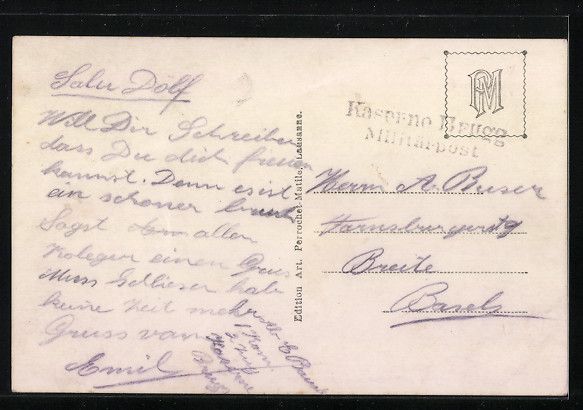 Salu Dölf
Will Dir Schreiben
dass Du dich freuen
kannst. Denn es ist
ein schöner
Sagst dem allen
Kolegen einen Gruss
Muss schlieser hab
keine Zeit mehr
Gruss vom
Emil
Kaserne
Brugg
Edition Art. Perrochet-Matile, Lausanne.
PM
Kaserne Brugg
Militärpost
Herrn A. Buser
Farnsburgerstr
Breite
Basel